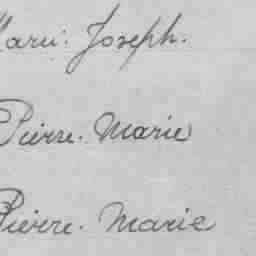 Marie. Joseph.
Pierre. Marie
Pierre. Marie